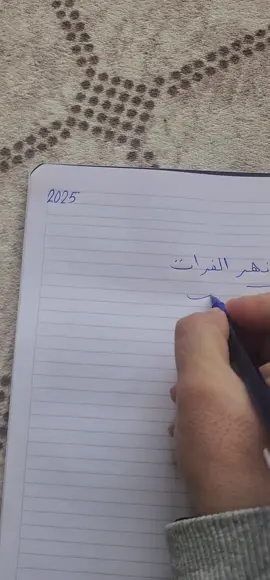 2025
نهر الفرات